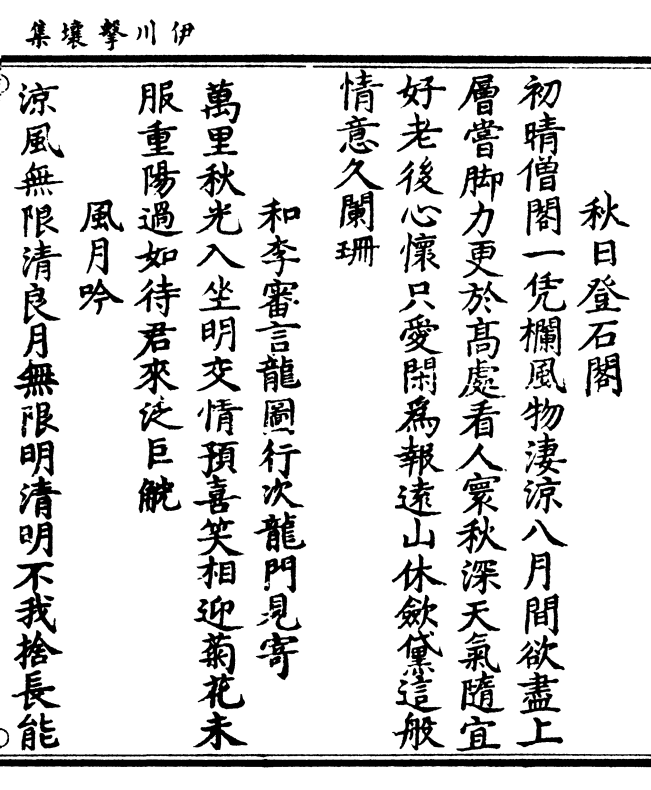 伊川擊壤集
秋日登石閣
初晴僧閣一凭欄風物淒涼八月間欲盡上
層嘗脚力更於髙處看人寰秋深天氣隨宜
好老後心懷只愛閑爲報遠山休歛黛這般
情意久闌珊
和李審言龍圖行次龍門見寄
萬里秋光入坐明交情預喜笑相迎菊花未
服重陽過如待君來泛巨觥
風月吟
涼風無限清良月無限明清明不我捨長能